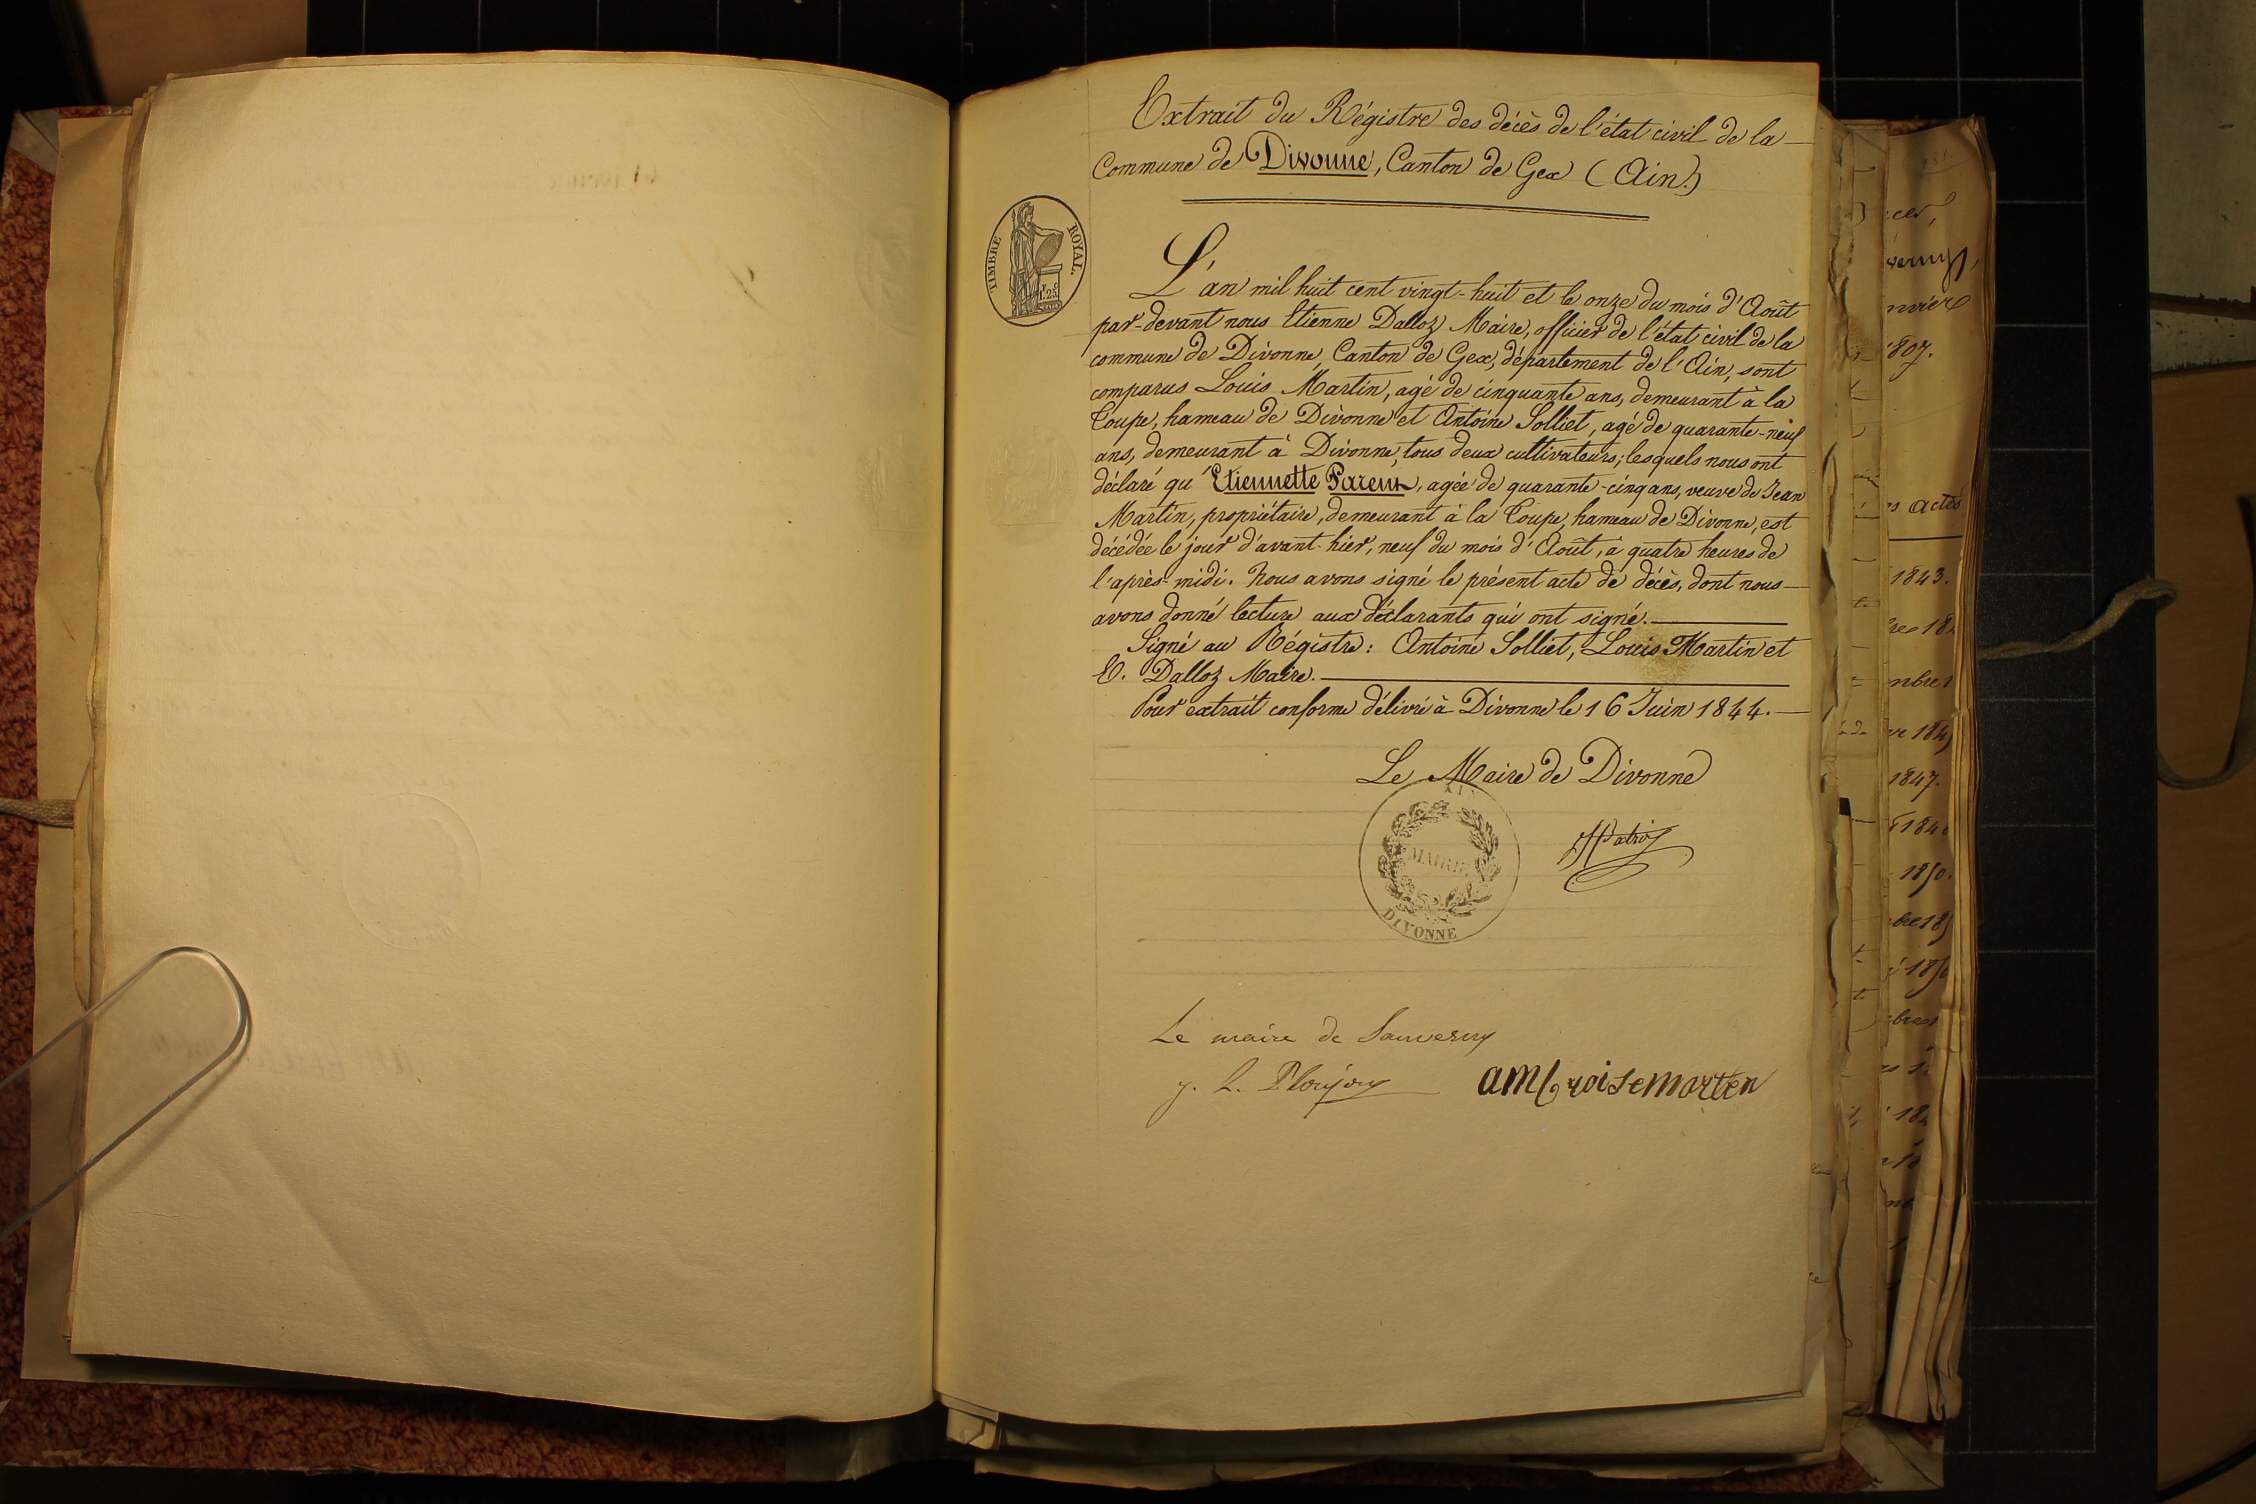 Extrait du Régistre des décès de l'état civil de la
Commune de Divonne, Canton de Gex (Ain.)
TIMBRE ROYAL.
L'an mil huit cent vingt-huit et le onze du mois d'Août
par-devant nous Etienne Dalloz Maire, officier de l'état civil de la
commune de Divonne, Canton de Gex, département de l'Ain, sont
comparus Louis Martin, agé de cinquante ans, demeurant à la
Coupe, hameau de Divonne et Antoine Solliet, agé de quarante-neuf
ans, demeurant à Divonne, tous deux cultivateurs; lesquels nous ont
déclaré qu'Etiennette Parent, agée de quarante-cinq ans, veuve de Jean
Martin, propriétaire, demeurant à la Coupe, hameau de Divonne, est
décédée le jour d'avant-hier, neuf du mois d'Août, à quatre heures de
l'après-midi. Nous avons signé le présent acte de décès, dont nous
avons donné lecture aux déclarants qui ont signé.
Signé au Régistre: Antoine Solliet, Louis Martin et
E. Dalloz Maire.
Pour extrait conforme délivré à Divonne le 16 Juin 1844.
Le Maire de Divonne
MAIRIE
DIVONNE
Le maire de Sauverny
j. L.
1807.
actes
1843.
1847.
1850.